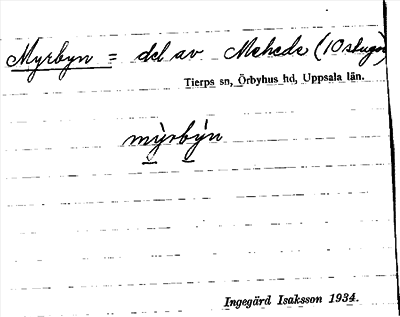 Myrbyn = del av Mehede (10 stugor)
Tierps sn, Örbyhus hd, Uppsala län.
mỳrbỳn
Ingegärd Isaksson 1934.